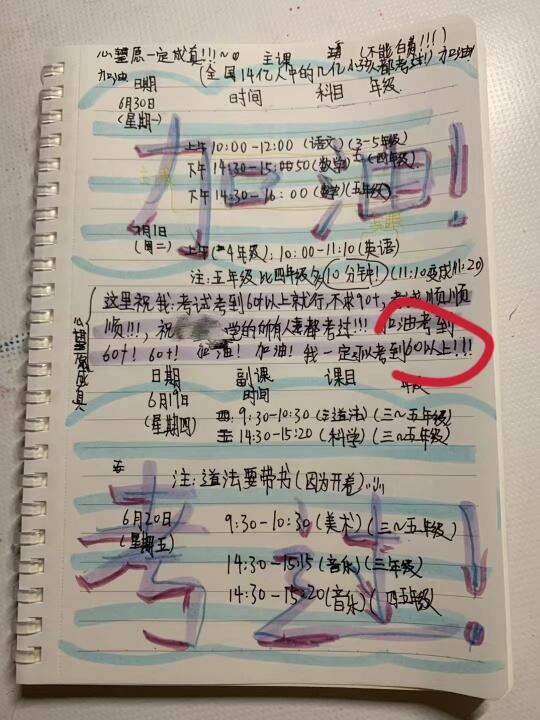 心望愿一定成真!!!~
主课
(不能白费!!!)
加油
(全国14亿人中的几亿小孩都考过!)加油!
日期
时间
科目
年级
6月30日
(星期一)
上午10:00-12:00(语文)(3-5年级)
下午14:30-15:50(数学)(四年级)
下午14:30-16:00(数学)(五年级)
7月1日
(周二)
上午(~4年级):10:00-11:10(英语)
注:五年级比四年级多10分钟!(11:10变成11:20)
这里祝我:考试考到60以上就行,不求90+,考试顺顺
顺!!!,祝
学的所有人都考过!!!加油考到
60+!60+!加油!加油!我一定可以考到60以上!!!
心想愿成真
日期
副课
课目
年级
时间
6月19日
(星期四)
9:30-10:30(道法)(三~五年级)
14:30-15:20(科学)(三~五年级)
注:道法要带书(因为开卷)
6月20日
(星期五)
9:30-10:30(美术)(三~五年级)
14:30-15:15(音乐)(三年级)
14:30-15:20(音乐)(四五年级)
加油!
考过!